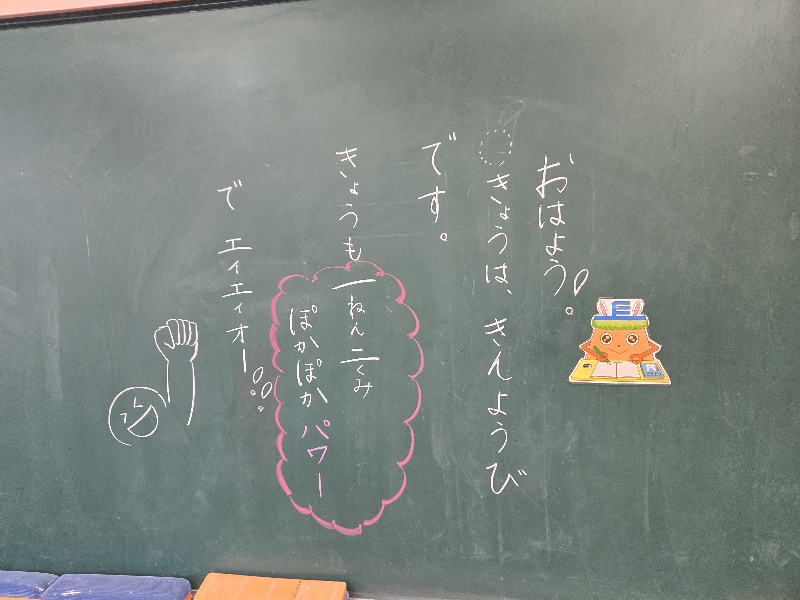 おはよう!。
きょうは、きんようび
です。
きょうも
一ねん二くみ
ぽかぽかパワー
で エイエイオー!!